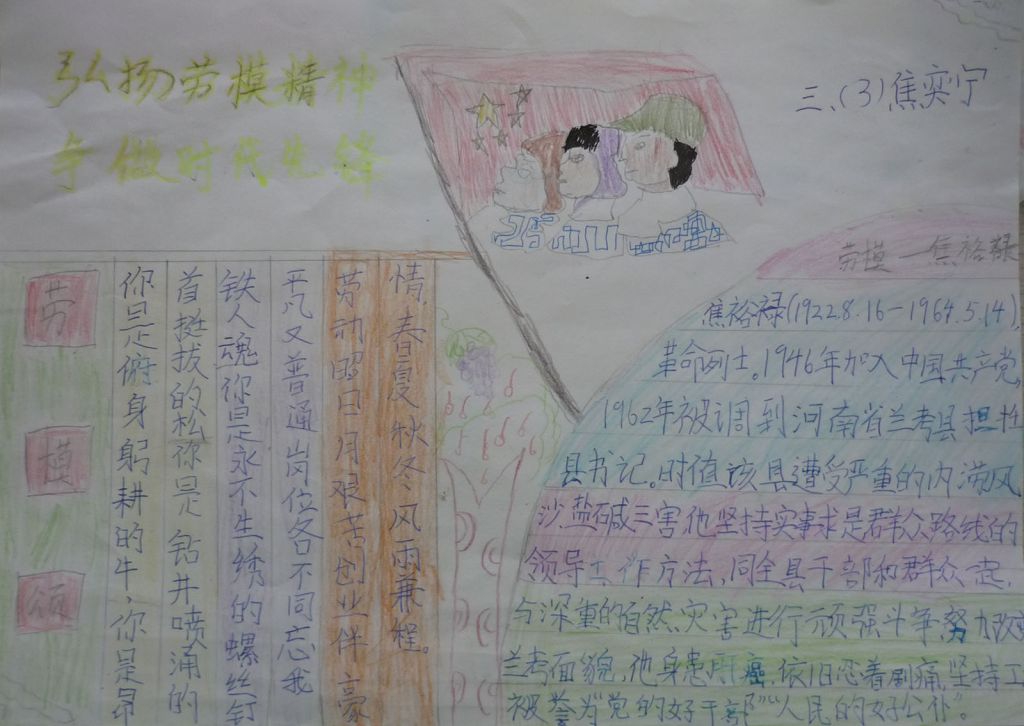 弘扬劳模精神
争做时代先锋
三、(3)焦奕宁
劳模颂
你是俯身躬耕的牛,你是昂
首挺拔的松你是钻井喷涌的
铁人魂你是永不生绣的螺丝钉
平凡又普通岗位各不同忘我
劳动昭日月艰苦创业伴豪
情,春夏秋冬风雨兼程。
劳模—焦裕禄
焦裕禄(1922.8.16-1964.5.14),
革命列士。1946年加入中国共产党,
1962年被调到河南省兰考县担任
县书记。时值该县遭受严重的内涝风
沙盐碱三害他坚持实事求是群众路线的
领导工作方法,同全县干部和群众一起,
与深重的自然灾害进行顽强斗争,努力改变
兰考面貌,他身患肝癌依旧忍着剧痛,坚持工
被誉为党的好干部""人民的好公仆"